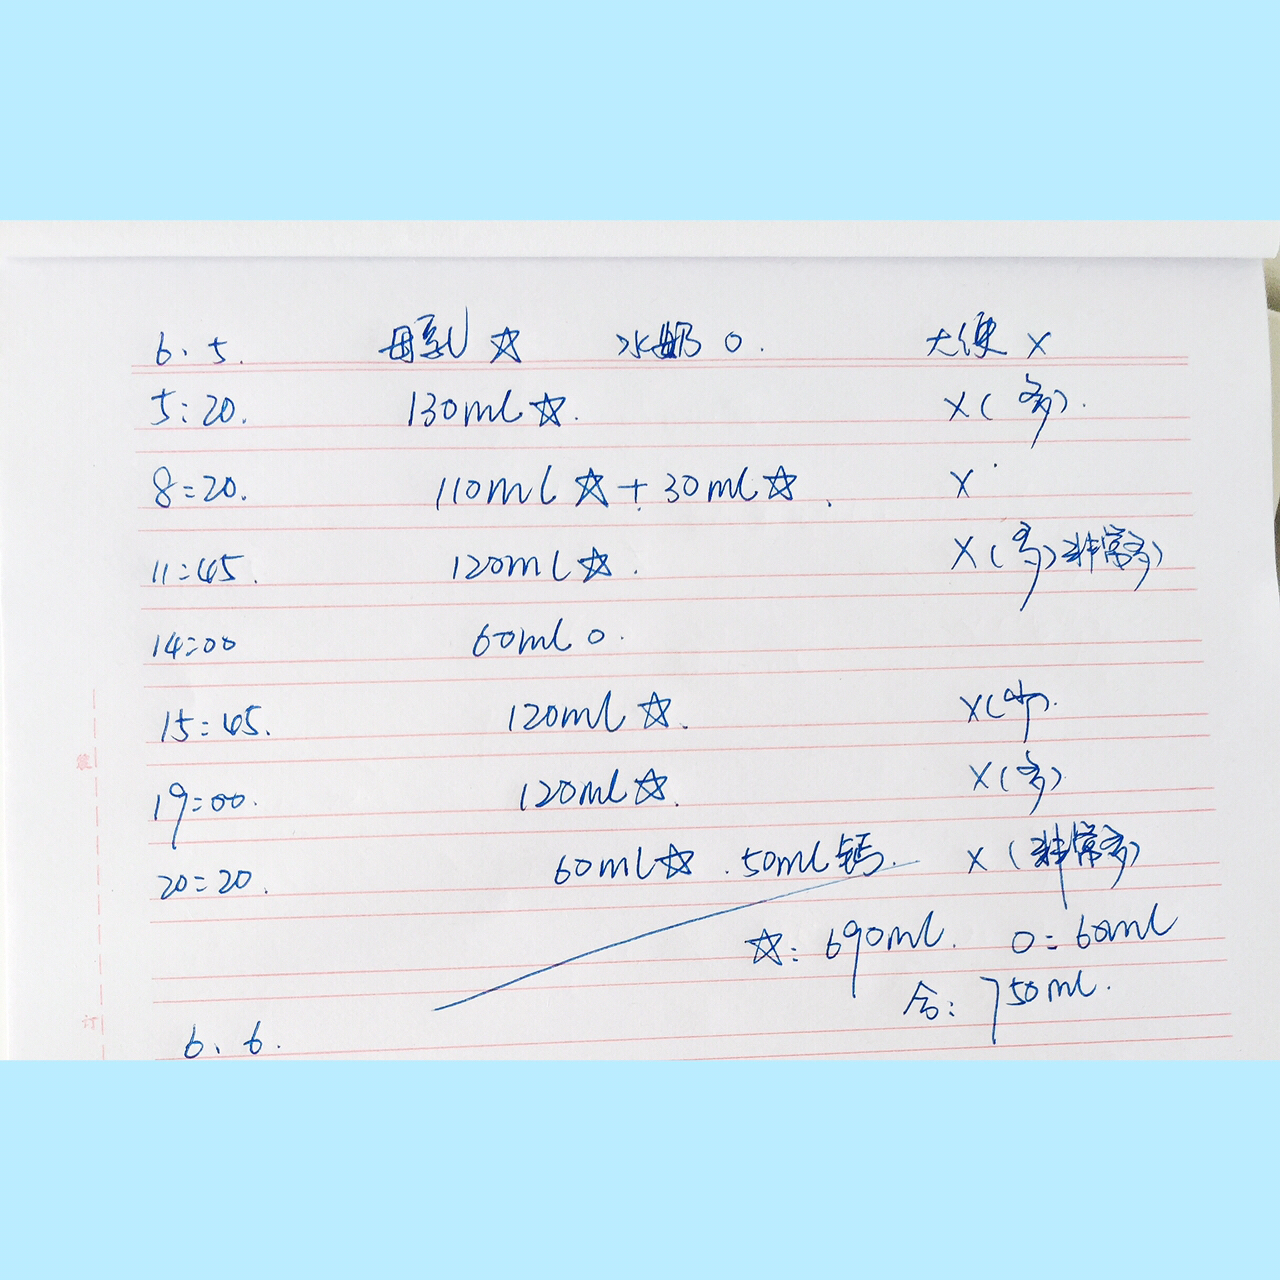 6、5. 母乳☆ 水奶 0. 大便 X
5:20. 130ml☆. X(多).
8:20. 110ml☆+30ml☆. X
11:45. 120ml☆. X(多)非常多)
14:00 60ml 0.
15:45. 120ml☆. X(中).
19:00. 120ml☆. X(多).
20:20. 60ml☆.50ml钙. X(非常多)
☆: 690ml. 0:60ml
合: 750ml.
6、6.
装
订